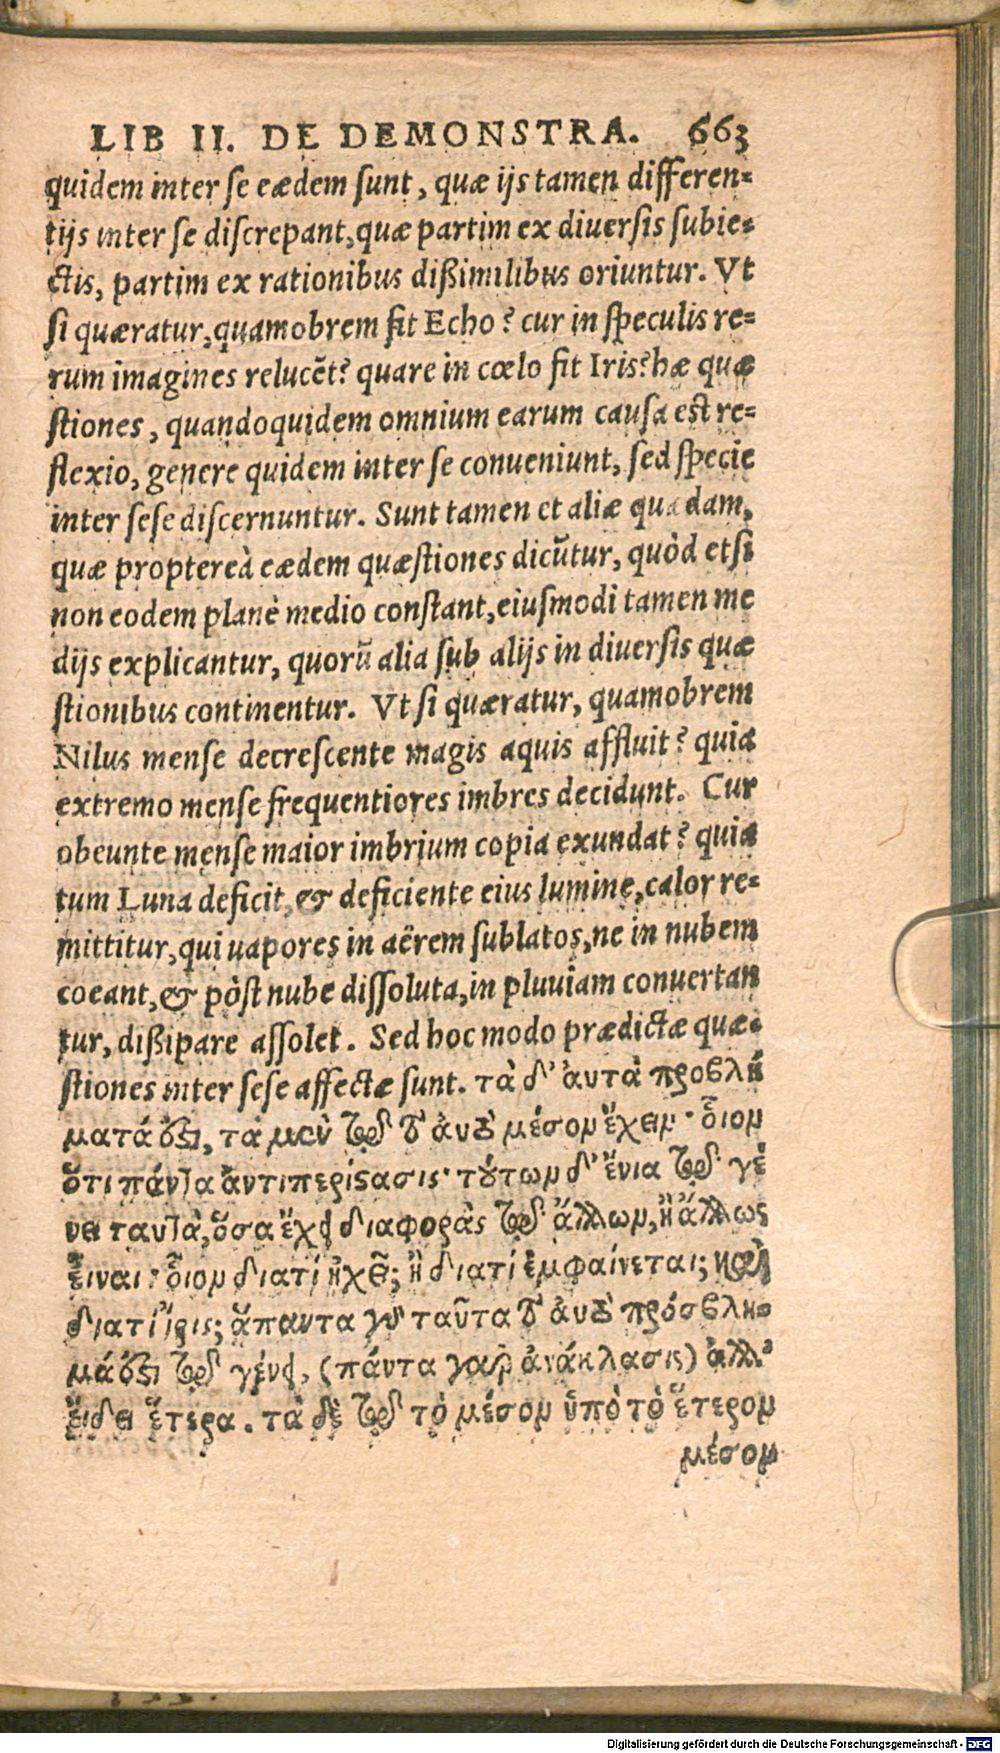 LIB II. DE DEMONSTRA. 663
quidem inter se eædem sunt, quæ ijs tamen differen-
tijs inter se discrepant, quæ partim ex diuersis subie-
ctis, partim ex rationibus dißimilibus oriuntur. Vt
si quæratur, quamobrem fit Echo? cur in speculis re-
rum imagines relucēt? quare in cœlo fit Iris? hæ quæ
stiones, quandoquidem omnium earum causa est re-
flexio, genere quidem inter se conueniunt, sed specie
inter sese discernuntur. Sunt tamen et aliæ quædam,
quæ proptereà eædem quæstiones dicūtur, quòd etsi
non eodem planè medio constant, eiusmodi tamen me
dijs explicantur, quorū alia sub alijs in diuersis quæ
stionibus continentur. Vt si quæratur, quamobrem
Nilus mense decrescente magis aquis affluit? quia
extremo mense frequentiores imbres decidunt. Cur
obeunte mense maior imbrium copia exundat? quia
tum Luna deficit, & deficiente eius lumine, calor re-
mittitur, qui uapores in aërem sublatos, ne in nubem
coeant, & pòst nube dissoluta, in pluuiam conuertan
tur, dißipare assolet. Sed hoc modo prædictæ quæ-
stiones inter sese affectæ sunt. τὰ δ' ἀυτὰ προβλή
ματά ὅξι, τὰ μὲν τῷ τὸ ἀυτὸ μέσον ἔχειν· ὅιον
ὅτι πάντα ἀντιπερίστασις· τούτων δ' ἔνια τῷ γέ
νει ταυτὰ, ὅσα ἔχει διαφορὰς τῷ ἄλλων, ἢ ἄλλως
εἶναι: ὅιον διατί ἠχεῖ; ἢ διατί ἐμφαίνεται; καὶ
διατί ἶρις; ἅπαντα γὰρ ταῦτα τὸ ἀυτὸ πρόβλη-
μά ὅξι τῷ γένει, (πάντα γὰρ ἀνάκλασις) ἀλλ'
εἴδει ἕτερα. τὰ δὲ τῷ τὸ μέσον ὑπὸ τὸ ἕτερον
μέσον
Digitalisierung gefördert durch die Deutsche Forschungsgemeinschaft - DFG